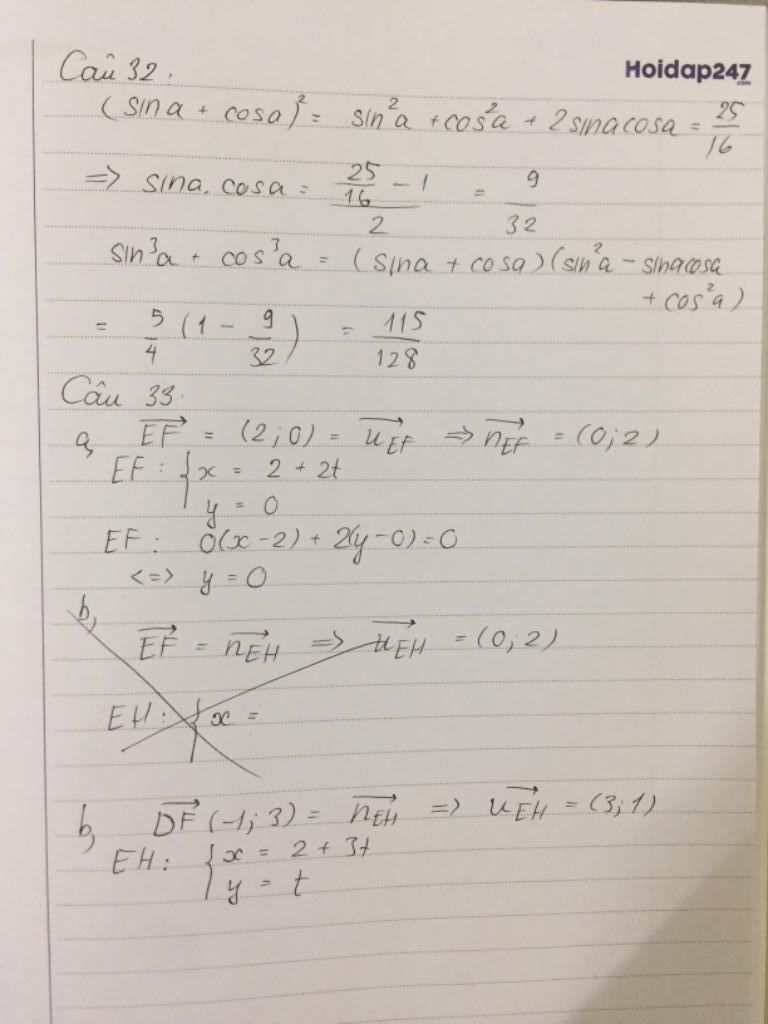 Hoidap247
.com
Câu 32.
(sina + cosa)² = sin²a + cos²a + 2sinacosa = 25/16
=> sina.cosa = (25/16 - 1)/2 = 9/32
sin³a + cos³a = (sina + cosa)(sin²a - sinacosa
+ cos²a)
= 5/4 (1 - 9/32) = 115/128
Câu 33.
a, EF→ = (2;0) = u→EF => n→EF = (0;2)
EF: { x = 2 + 2t
y = 0
EF: 0(x-2) + 2(y-0) = 0
<=> y = 0
b,
EF→ = n→EH => u→EH = (0;2)
EH: { x =
b, DF→ (-1;3) = n→EH => u→EH = (3;1)
EH: { x = 2 + 3t
y = t